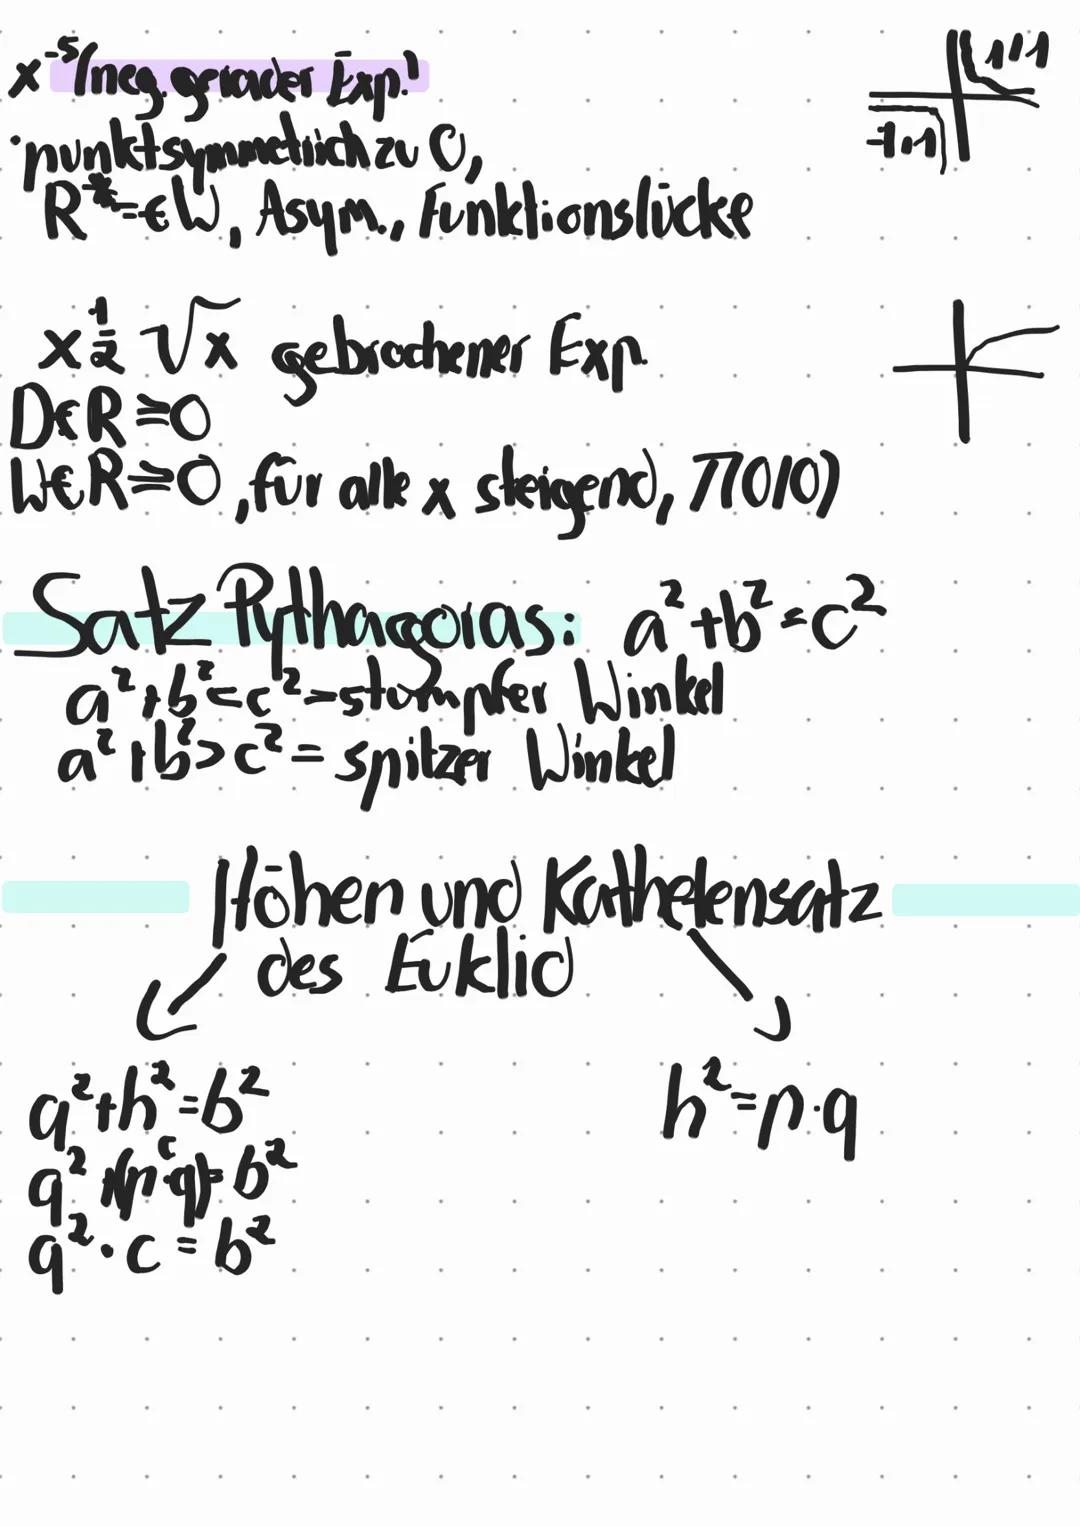 x⁻⁵ (neg. gerader Exp.)
1/1
-1,1
· punktsymmetrisch zu 0,
R*=∈W, Asym., Funktionslücke
x^½ √x gebrochener Exp.
D∈R≥0
W∈R≥0, für alle x steigend, TP(0/0)
Satz Pythagoras: a²+b²=c²
a²+b²<c²=stumpfer Winkel
a²+b²>c²= spitzer Winkel
Höhen und Kathetensatz
des Euklid
q²+h²=b²
h²=p·q
q²+(p·q)=b²
c
q²·c=b²